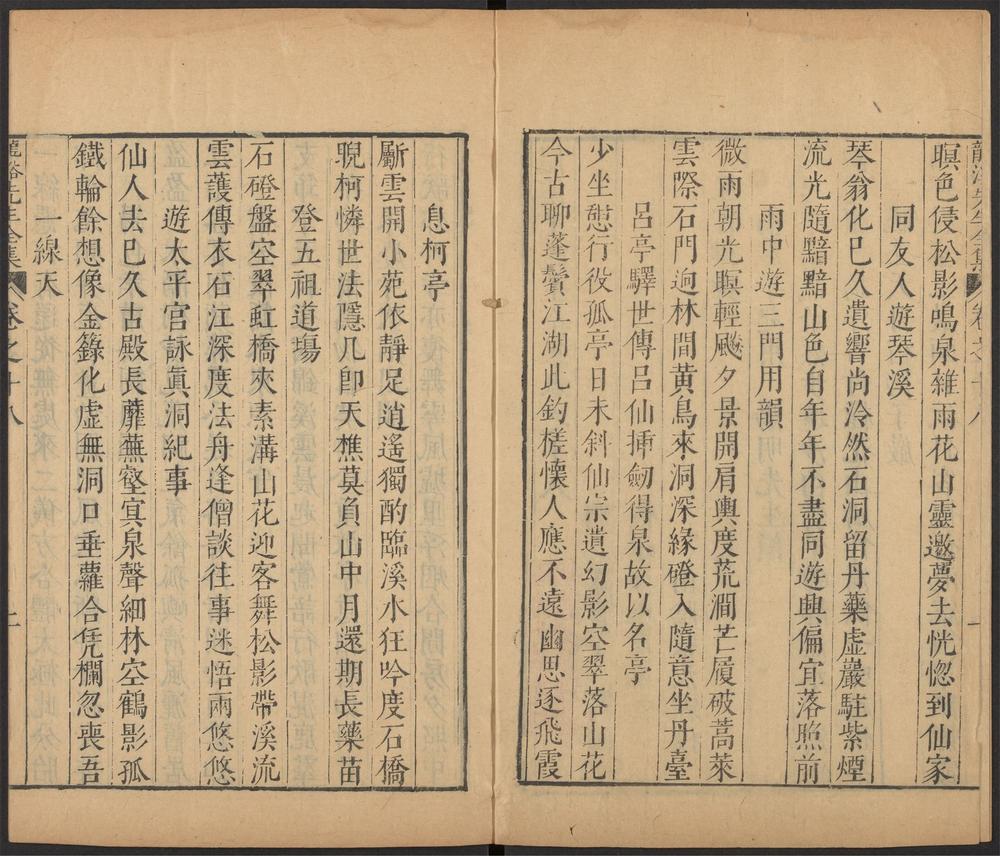 暝色侵松影鳴泉雜雨花山靈邀夢去恍惚到仙家
同友人遊琴溪
琴翁化已久遺響尚泠然石洞留丹藥虛巖駐紫煙
流光隨黯黯山色自年年不盡同遊興偏宜落照前
雨中遊三門用韻
微雨朝光暝輕颸夕景開肩輿度荒澗芒履破蒿萊
雲際石門迥林間黄鳥來洞深緣磴入隨意坐丹臺
呂亭驛世傳呂仙揷劒得泉故以名亭
少坐憇行役孤亭日未斜仙宗遺幻影空翠落山花
今古聊蓬鬢江湖此釣槎懷人應不遠幽思逐飛霞
息柯亭
斸雲開小苑依靜足逍遙獨酌臨溪水狂吟度石橋
睨柯憐世法隱几卽天樵莫負山中月還期長藥苗
登五祖道塲
石磴盤空翠虹橋夾素溝山花迎客舞松影帶溪流
雲護傳衣石江深度法舟逢僧談往事迷悟兩悠悠
遊太平宮詠眞洞紀事
仙人去已久古殿長蘼蕪壑㝠泉聲細林空鶴影孤
鐵輪餘想像金籙化虛無洞口垂蘿合凭欄忽喪吾
一線天
龍谿先生全集 卷之十八